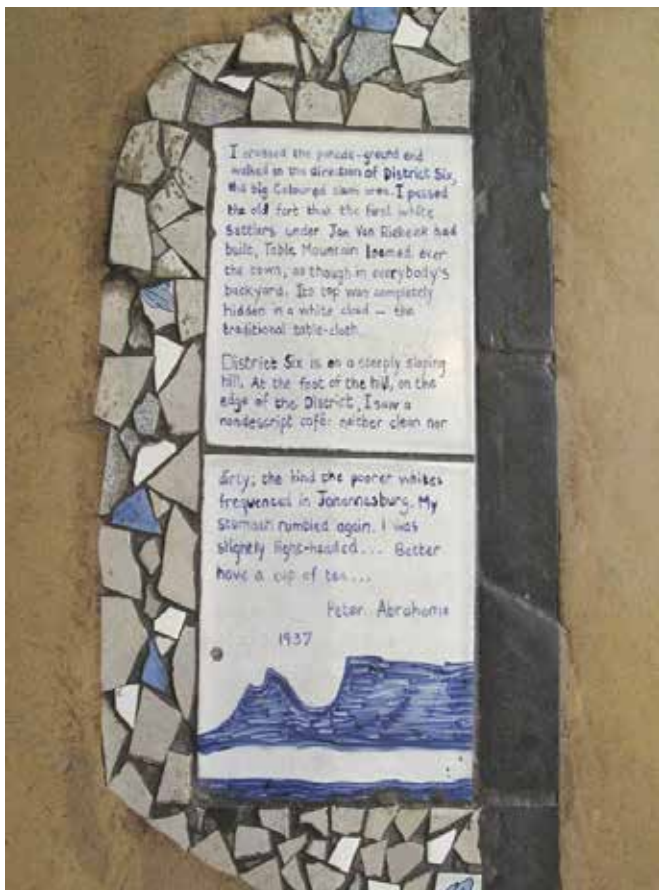 I crossed the parade-ground and
walked in the direction of District Six,
the big Coloured slum area. I passed
the old fort that the first white
settlers under Jan Van Riebeek had
built, Table Mountain loomed over
the town, as though in everybody's
backyard. Its top was completely
hidden in a white cloud — the
traditional table-cloth.
District Six is on a steeply sloping
hill. At the foot of the hill, on the
edge of the District, I saw a
nondescript café: neither clean nor
dirty; the kind the poorer whites
frequented in Johannesburg. My
stomach rumbled again. I was
slightly light-headed... Better
have a cup of tea...
Peter Abrahams
1937